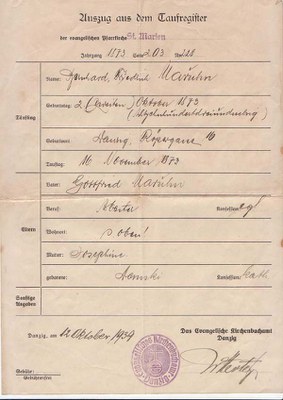 Auszug aus dem Taufregister
der evangelischen Pfarrkirche St. Marien
Jahrgang 1873 Seite 203 Nr.
Täufling
Name: Bernhard Maruhn
Geburtstag: 2. (Zweiten) Oktober 1873
Geburtsort: Danzig,
Tauftag: 16 November 1873
Eltern
Vater: Gottfried Maruhn
Beruf: Arbeiter Konfession: evgl
Wohnort: s. oben!
Mutter: Josephine
geborene: Konfession: kath
Sonstige
Angaben
Danzig, am 12. Oktober 1939
Das Evangelische Kirchenbuchamt
Danzig
Gebühr:
Gebührenfrei.